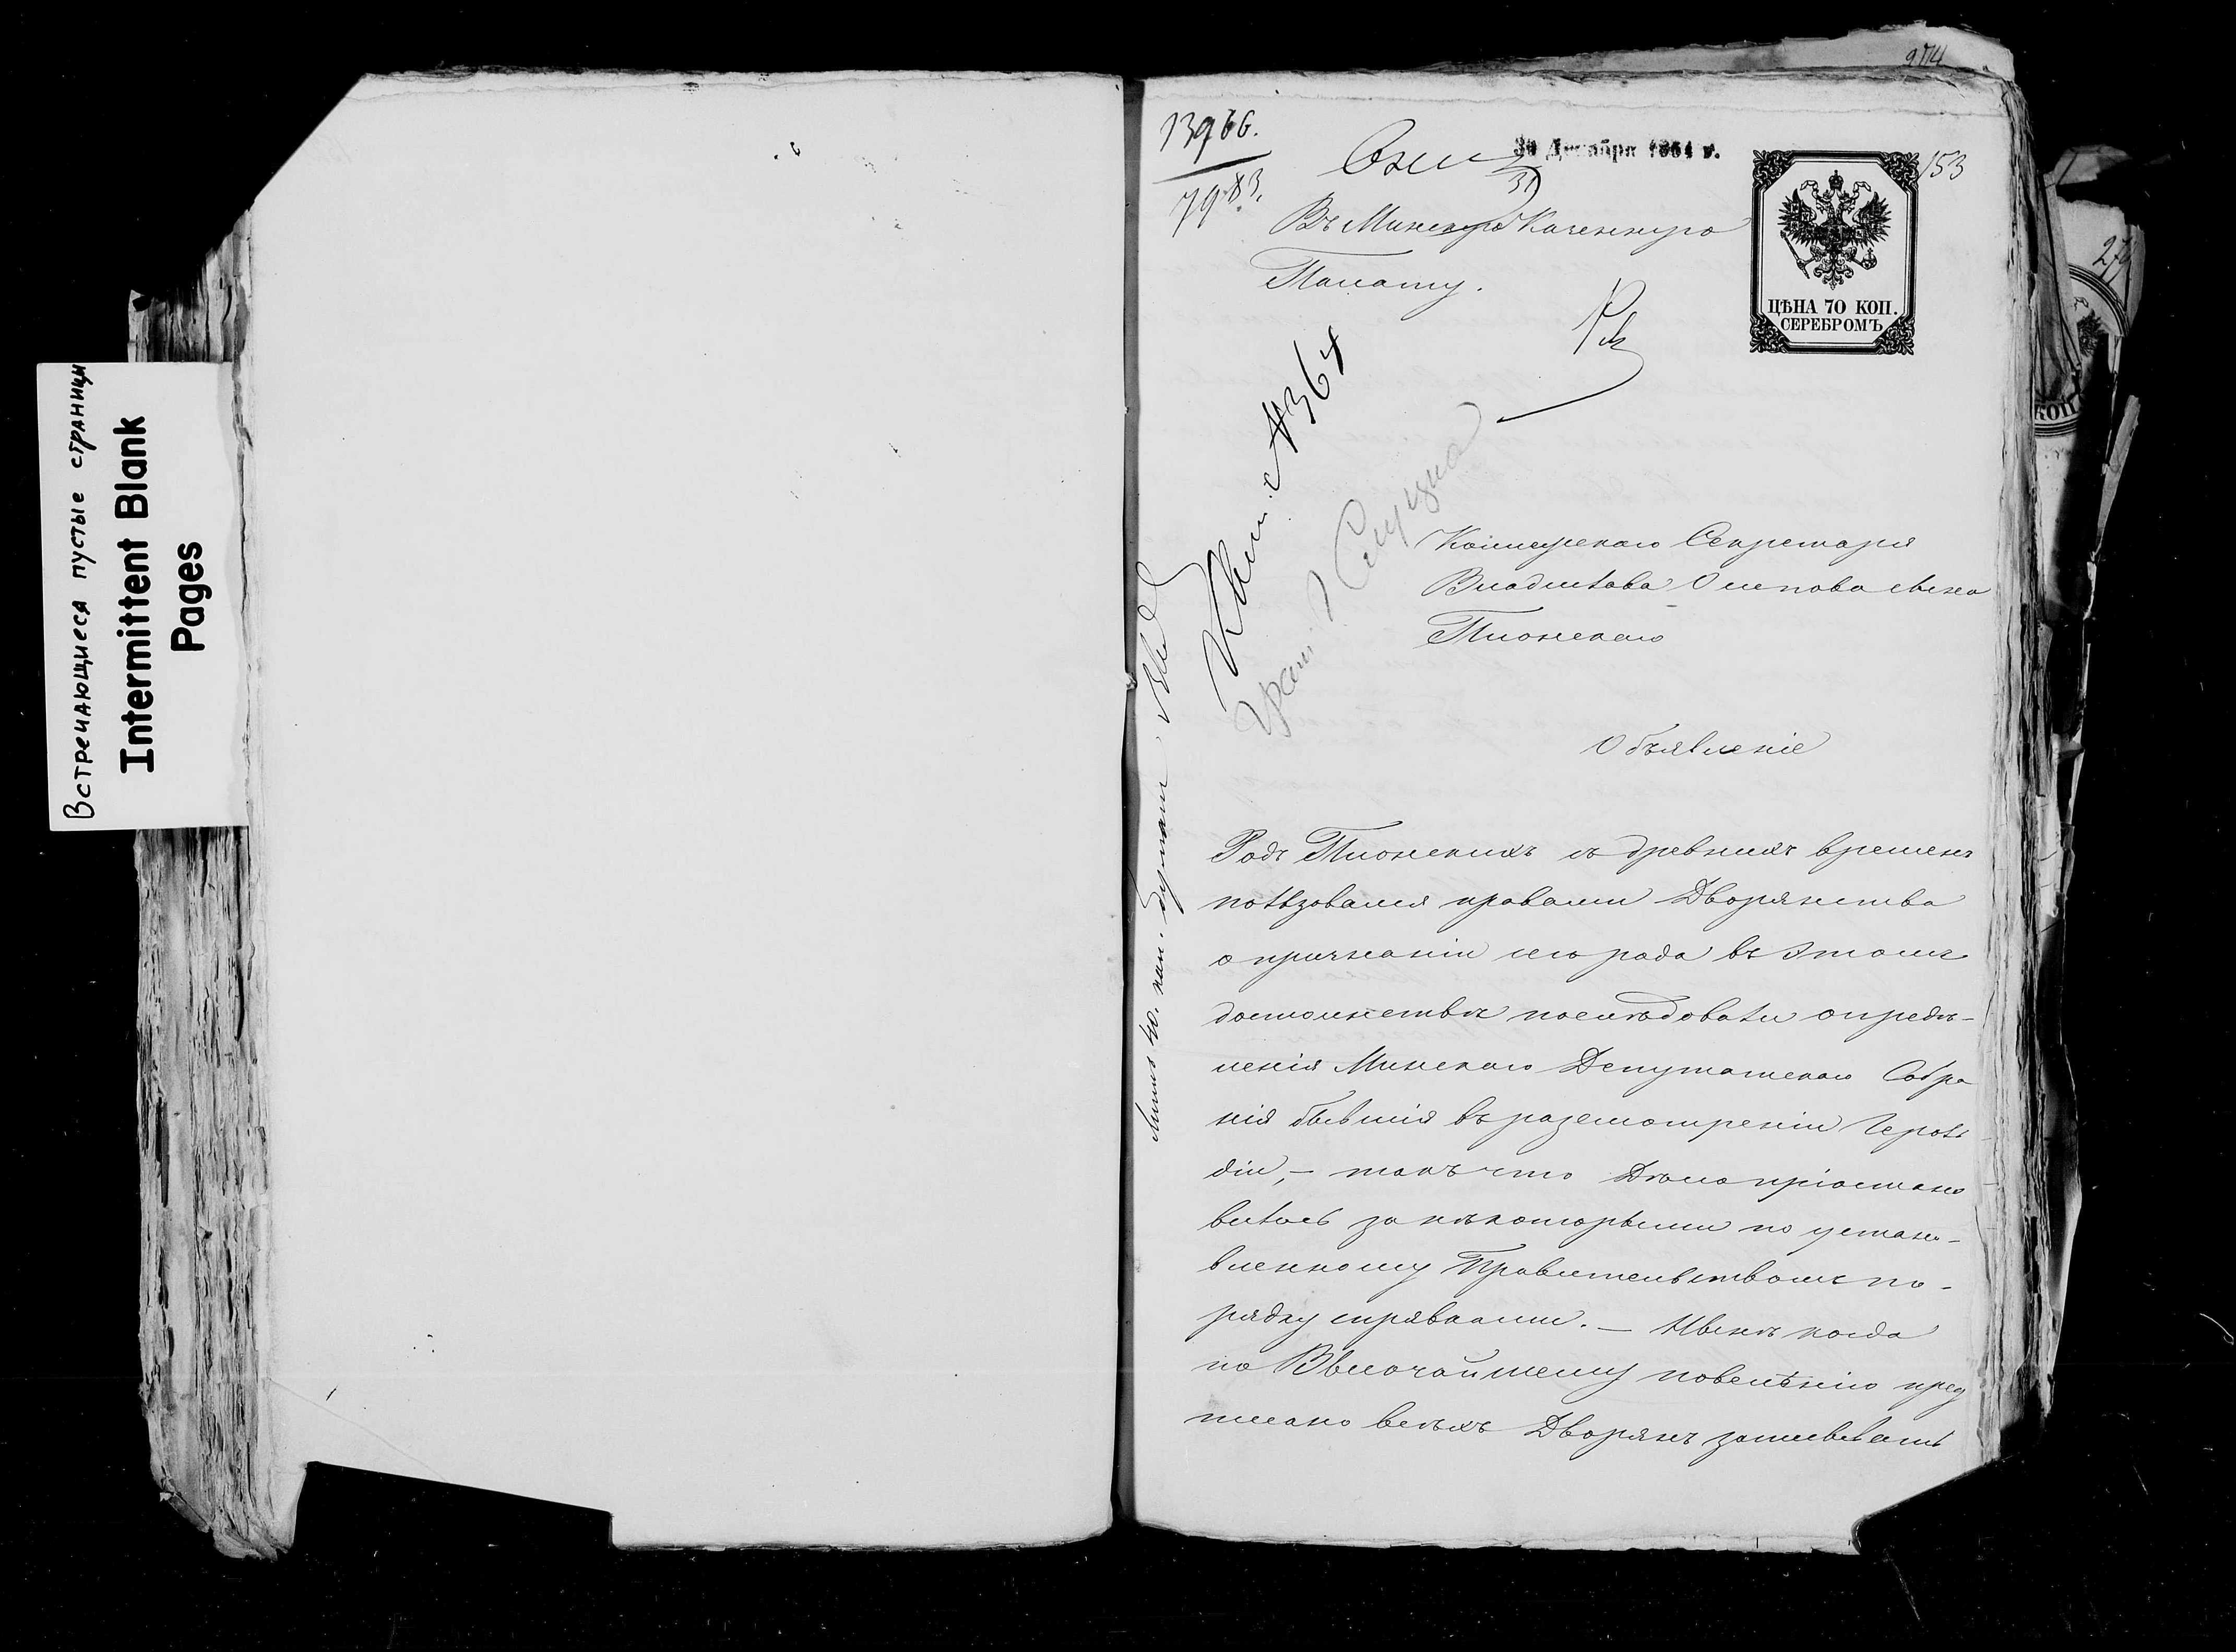 Встречающиеся пустые страницы
Intermittent Blank
Pages
274
13966.
7983.
30 Декабря 1864 г.
31
153
Въ Минскую Казенную
Палату.
ЦѢНА 70 КОП.
СЕРЕБРОМЪ
27
КОП
№364
Коллежскаго Секретаря
Владислава Осипова сына
Плонскаго
Объявленіе
Родъ Плонскихъ съ древнихъ временъ
пользовался правами Дворянства
о признаніи сего рода въ этомъ
достоинствѣ послѣдовали опредѣ-
ленія Минскаго Депутатскаго Собра
нія бывшія въ разсмотреніи Героль
діи, - такъ что Дѣло пріостано
вилось за нѣкоторыми по устано-
вленному Правительствомъ по-
рядку справками. — Нынѣ когда
по Высочайшему повелѣнію пред
писано всѣхъ Дворянъ